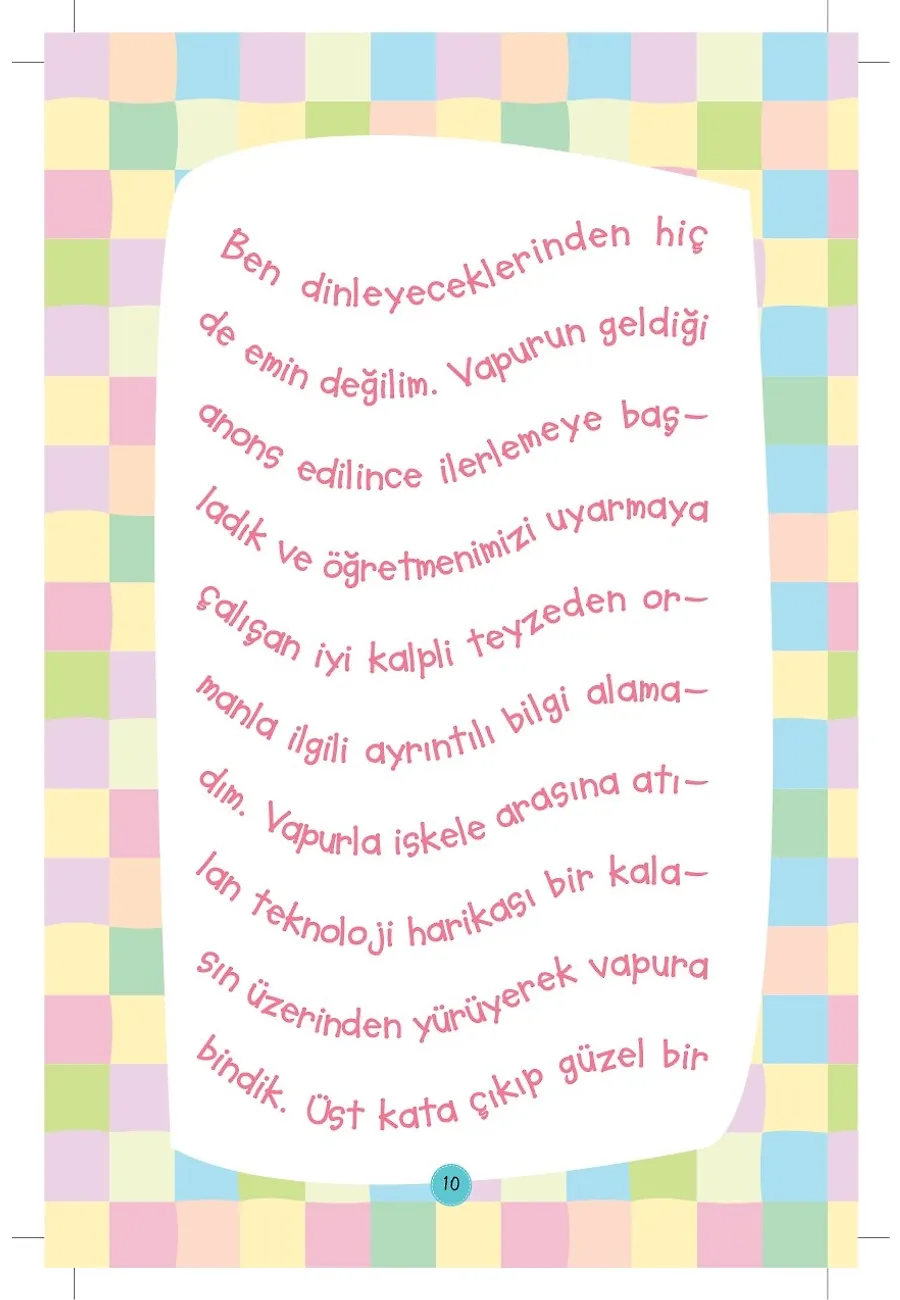 Ben dinleyeceklerinden hiç
de emin değilim. Vapurun geldiği
anons edilince ilerlemeye baş-
ladık ve öğretmenimizi uyarmaya
çalışan iyi kalpli teyzeden or-
manla ilgili ayrıntılı bilgi alama-
dım. Vapurla iskele arasına atı-
lan teknoloji harikası bir kala-
sın üzerinden yürüyerek vapura
bindik. Üst kata çıkıp güzel bir
10